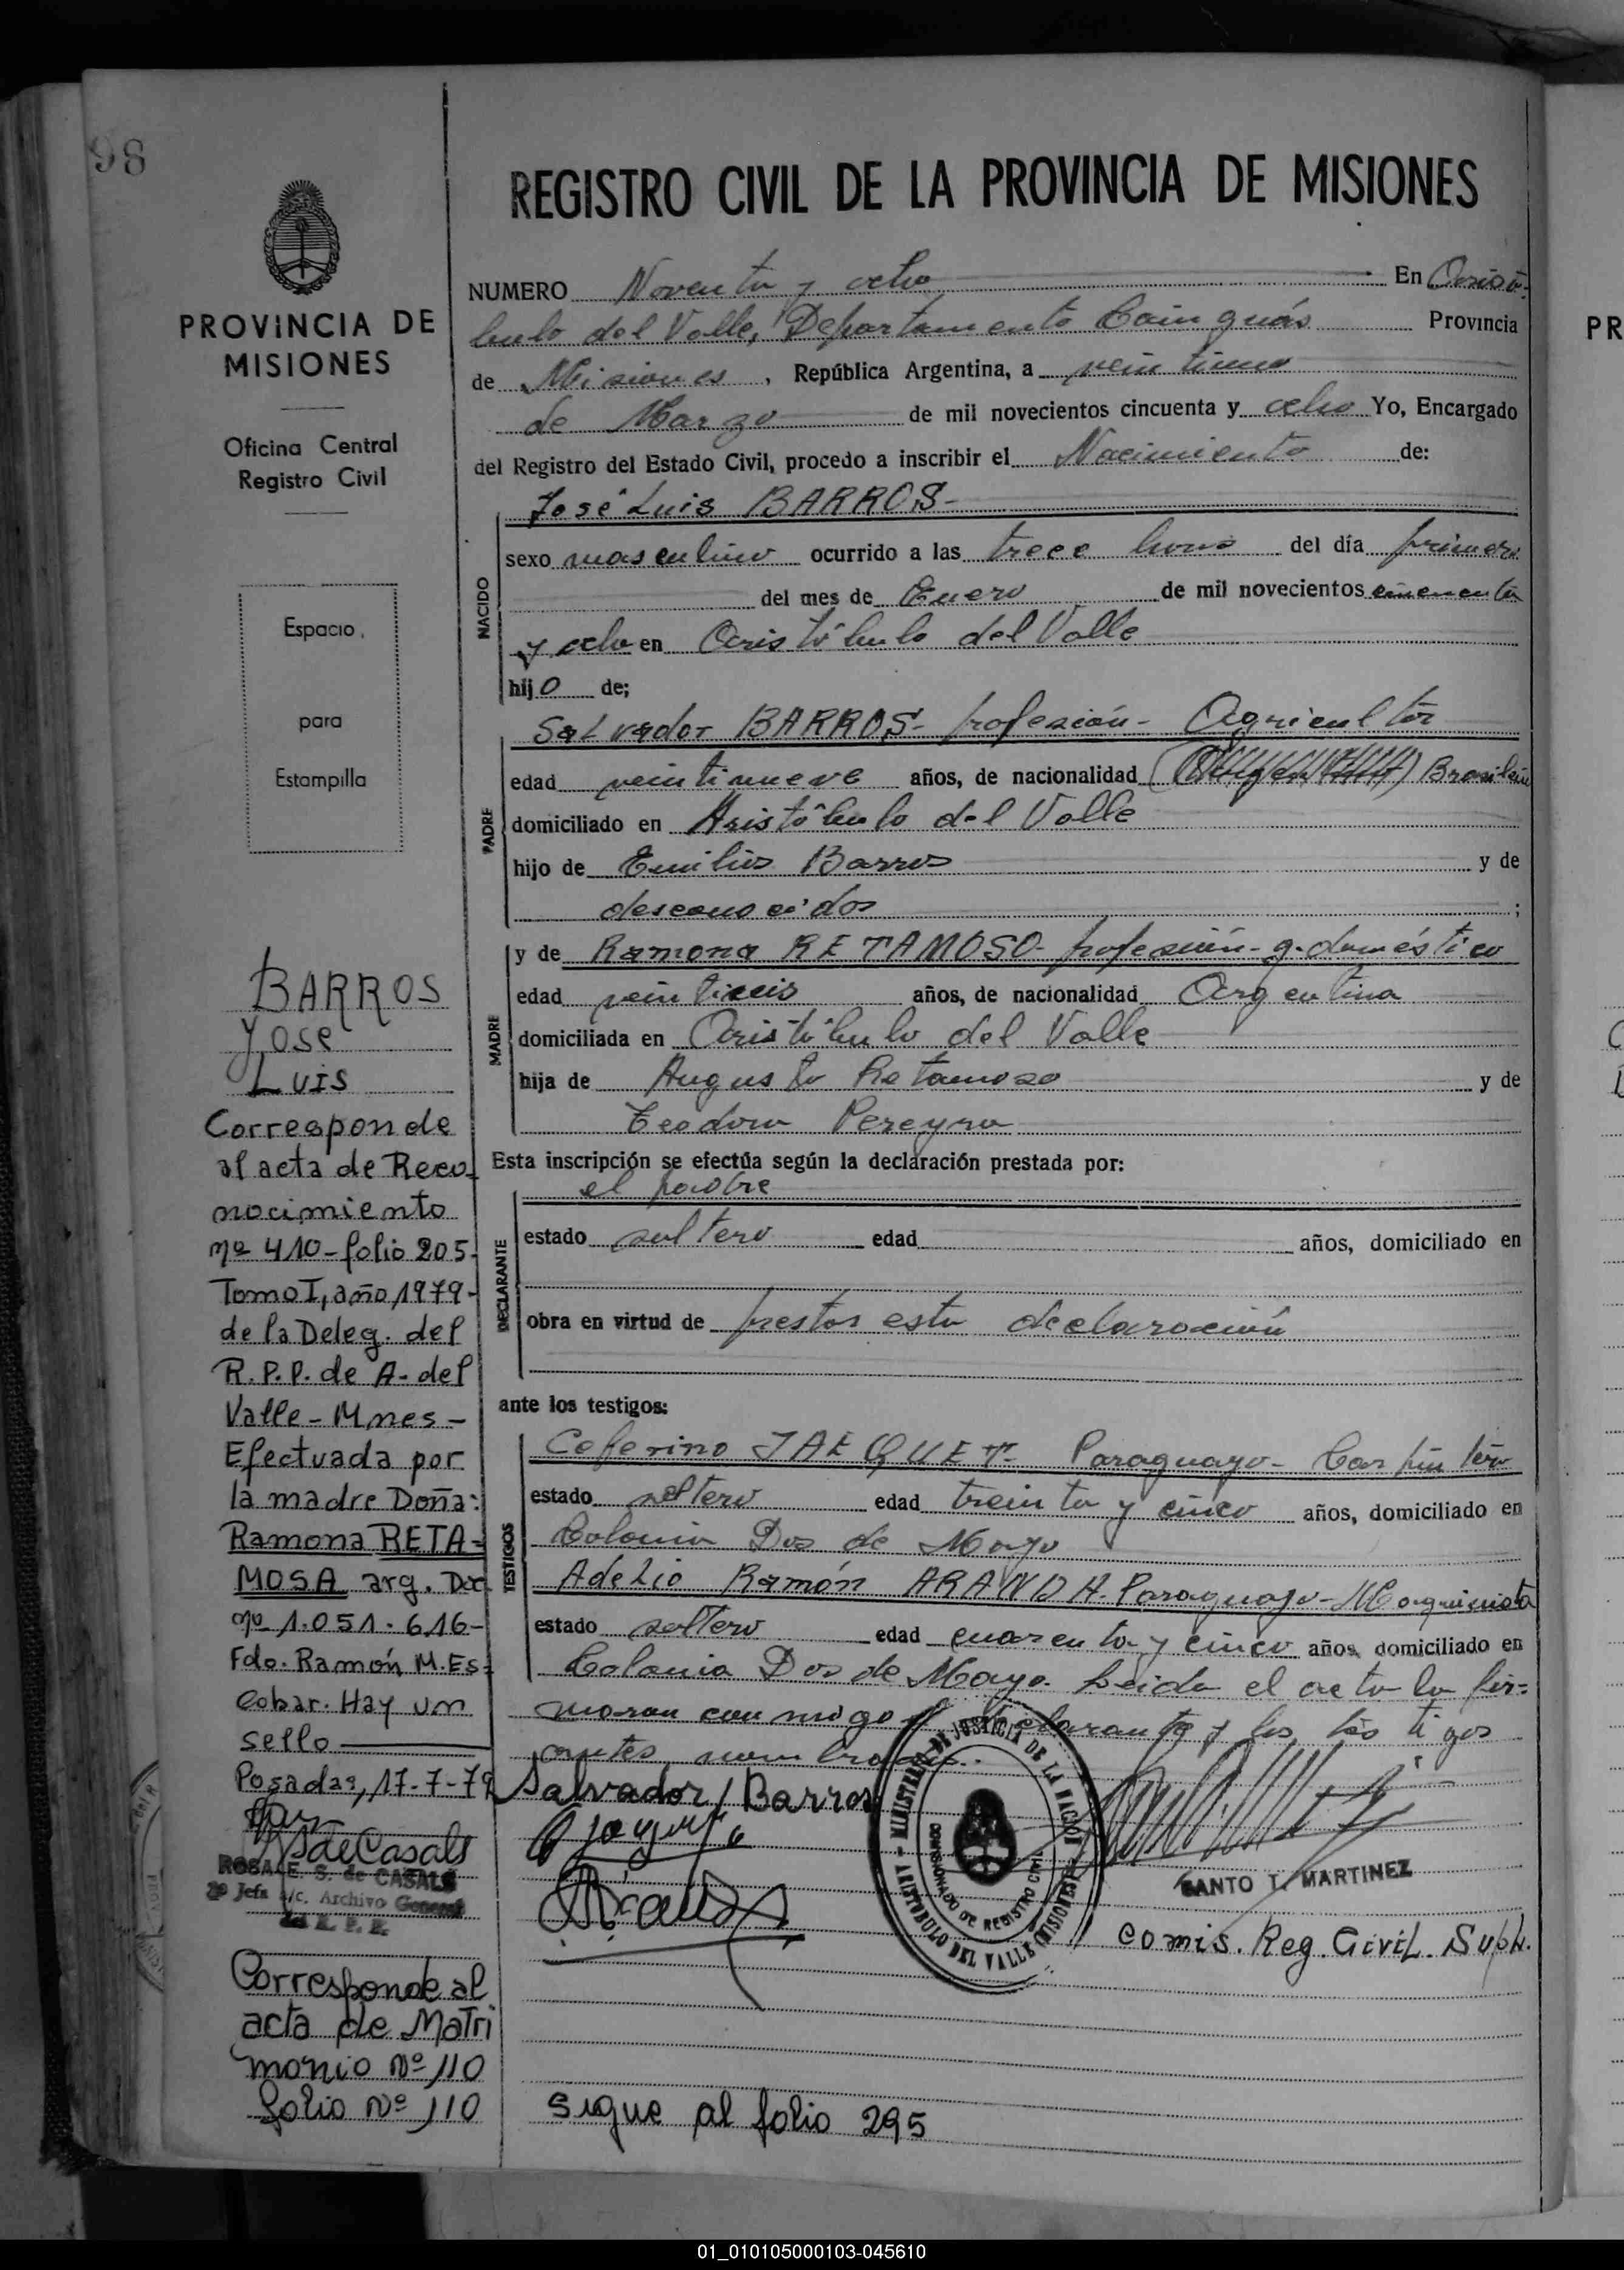 98
REGISTRO CIVIL DE LA PROVINCIA DE MISIONES
PROVINCIA DE
MISIONES
Oficina Central
Registro Civil
Espacio
para
Estampilla
NUMERO Noventa y ocho En Aristó-
bulo del Valle, Departamento Cainguás Provincia
de Misiones, República Argentina, a veintiuno
de Marzo de mil novecientos cincuenta y ocho Yo, Encargado
del Registro del Estado Civil, procedo a inscribir el Nacimiento de:
José Luis BARROS-
NACIDO
sexo masculino ocurrido a las trece horas del día primero
del mes de Enero de mil novecientos cincuenta
y ocho en Aristóbulo del Valle
hijo de;
PADRE
Salvador BARROS- profesión- Agricultor
edad veintinueve años, de nacionalidad Brasileño
domiciliado en Aristóbulo del Valle
hijo de Emilio Barros y de
desconocidos ;
MADRE
y de Ramona RETAMOSO- profesión- q. doméstico
edad veintiseis años, de nacionalidad Argentina
domiciliada en Aristóbulo del Valle
hija de Augusto Retamoso y de
Teodora Pereyra
Esta inscripción se efectúa según la declaración prestada por:
el padre
DECLARANTE
estado soltero edad años, domiciliado en
obra en virtud de prestar esta declaración
ante los testigos:
TESTIGOS
Ceferino JAEQUET- Paraguayo- Carpintero
estado soltero edad treinta y cinco años, domiciliado en
Colonia Dos de Mayo
Adelio Ramón ARANDA- Paraguayo- Maquinista
estado soltero edad cuarenta y cinco años, domiciliado en
Colonia Dos de Mayo. Leida el acta la fir-
maron conmigo el declarante y los testigos
antes nombrados.
Salvador Barros
MINISTERIO DE JUSTICIA DE LA NACION
ARISTOBULO DEL VALLE (MISIONES)
COMISIONADO DE REGISTRO CIVIL
SANTO T. MARTINEZ
Comis. Reg. Civil. Supl.
Sigue al folio 295
BARROS
Jose
Luis
Corresponde
al acta de Reco-
nocimiento
nº 410-folio 205-
Tomo I, año 1979-
de la Deleg. del
R.P.P. de A. del
Valle-Mnes-
Efectuada por
la madre Doña:
Ramona RETA-
MOSA arg. Doc
nº 1.051.616-
Fdo. Ramón M. Es-
cobar. Hay un
sello
Posadas, 17-7-79
ROSA E. S. de CASALS
2º Jefa a/c. Archivo General
del R. P. P.
Corresponde al
acta de Matri
monio Nº 110
folio Nº 110
PR
01_010105000103-045610